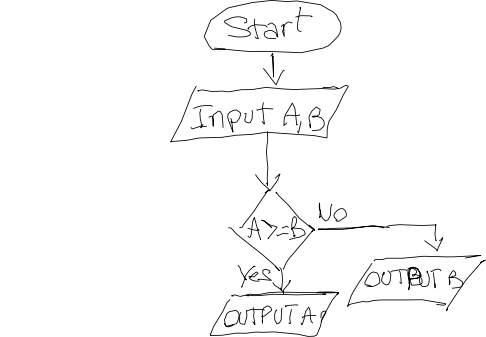 Start
Input A,B
A>=B
No
Yes
OUTPUT B
OUTPUT A